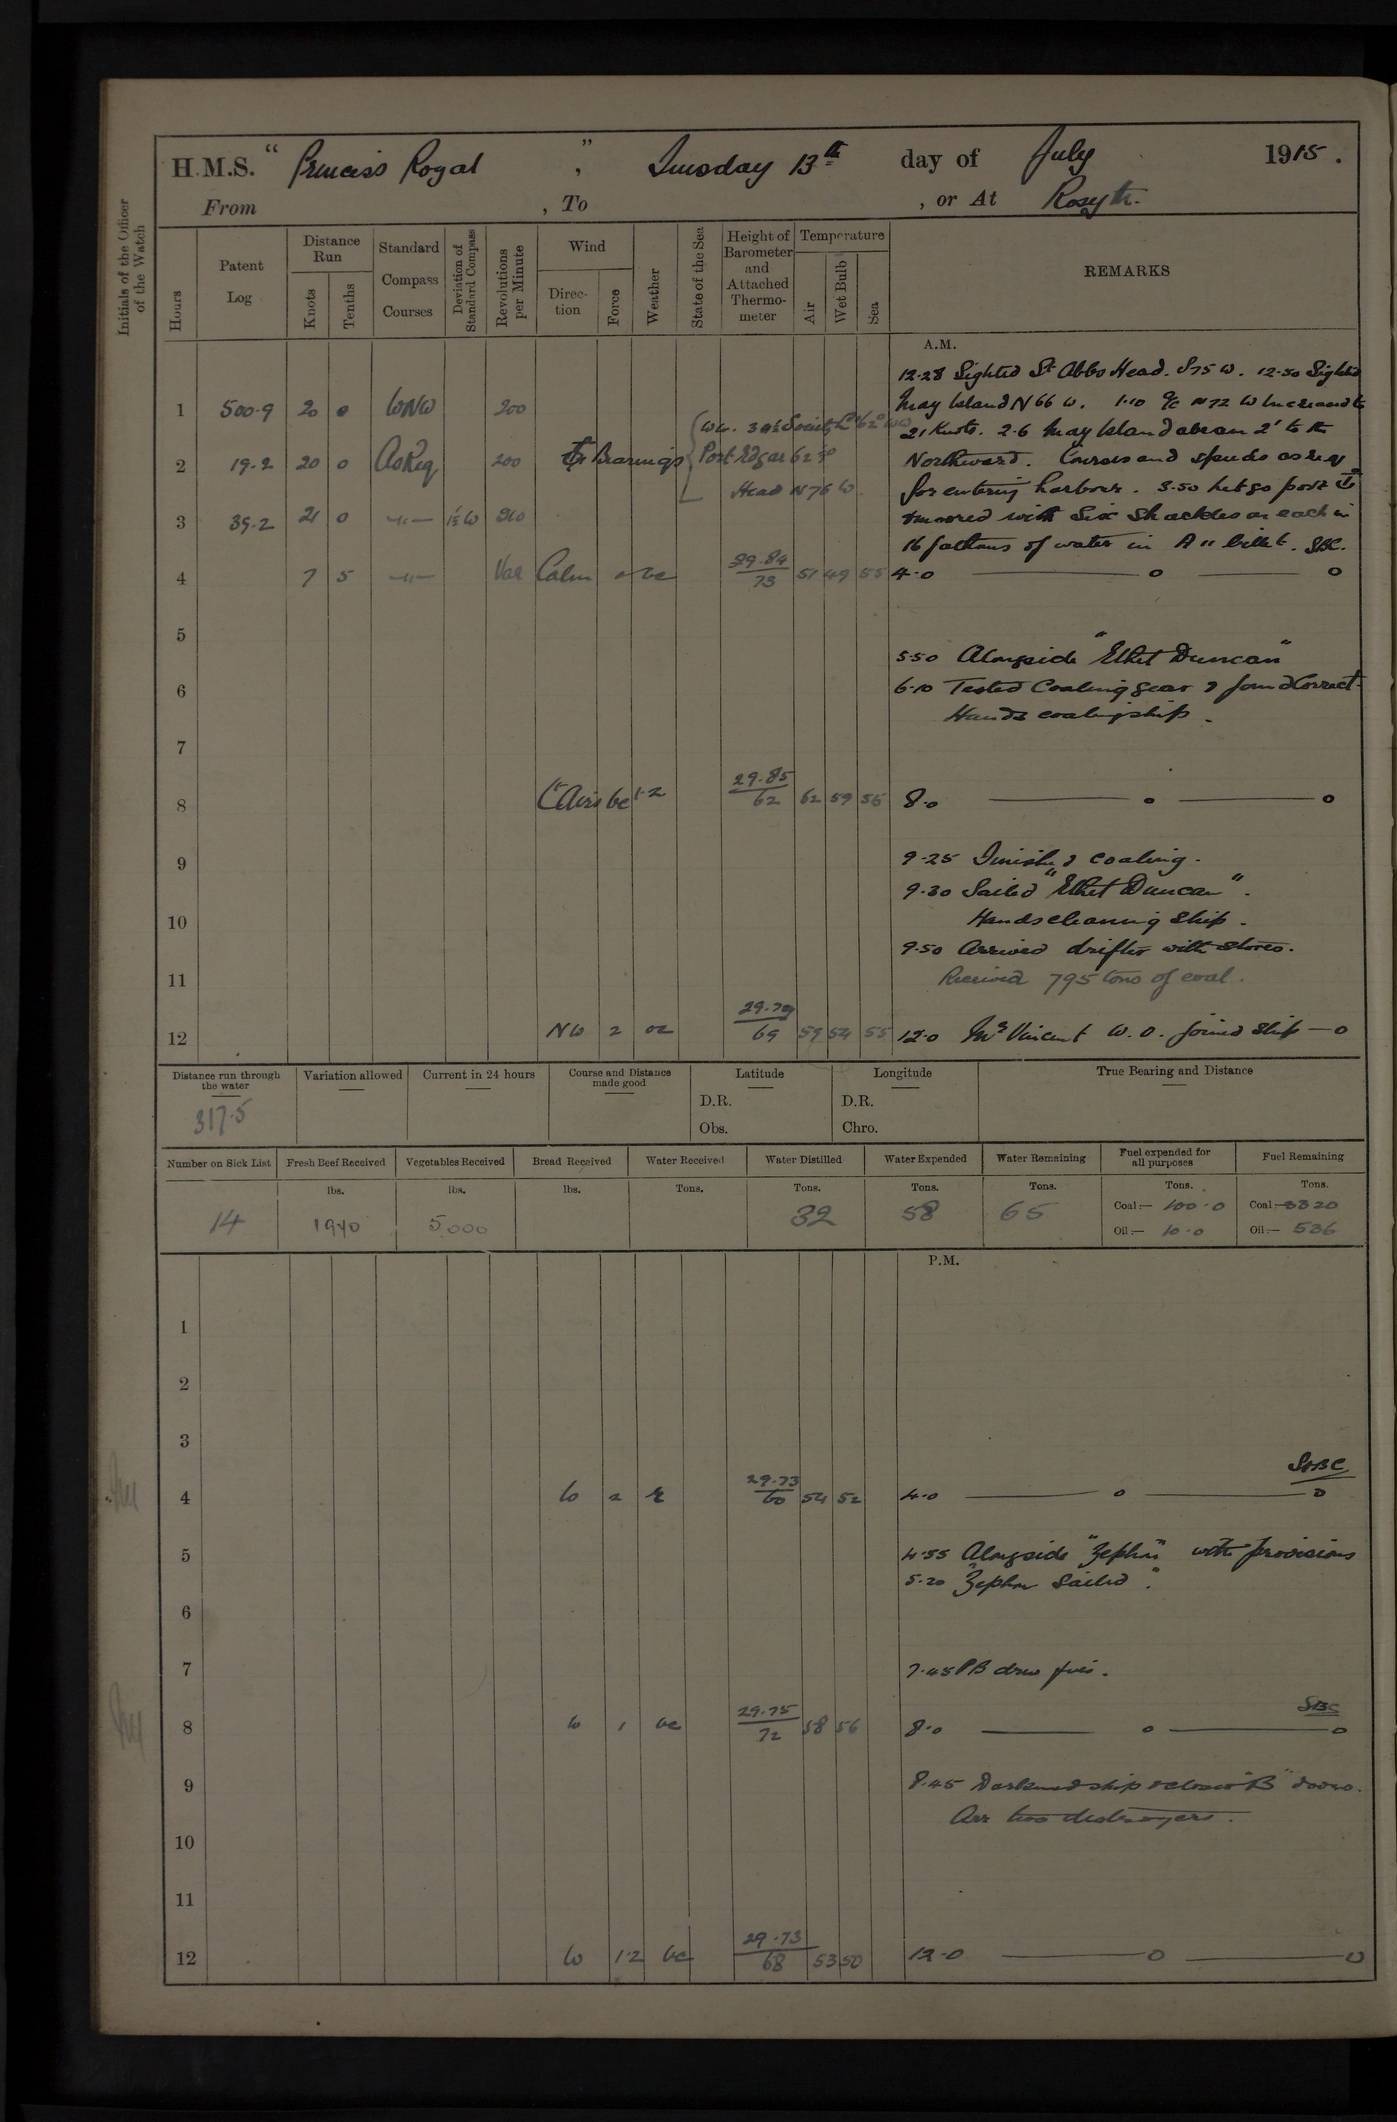 H.M.S. "Princess Royal", Tuesday 13th day of July 1915.
From , To , or At Rosyth.
Initials of the Officer of the Watch
Hours
Patent Log
Distance Run
Knots
Tenths
Standard Compass Courses
Deviation of Standard Compass
Revolutions per Minute
Wind
Direction
Force
Weather
State of the Sea
Height of Barometer and Attached Thermometer
Temperature
Air
Wet Bulb
Sea
REMARKS
A.M.
12.28 Sighted St Abbs Head. S75 W. 12.50 Sighted
1 500.9 20 0 WNW 200 May Island N 66 W. 1.10 a/c N 72 W Increased to
21 Knots. 2.6 May Island abeam 2' to the
2 19.2 20 0 As Req 200 Bearings Port Edgar Northward. Courses and speeds as req
Head N 76 W for entering harbour. 3.50 let go port
3 39.2 21 0 -"- 1½ W 210 moored with six shackles on each in
16 fathoms of water in A 11 billet. SBC.
4 7 5 -"- Var Calm 0 bc 29.84 73 51 49 55 4.0
5
5.50 Alongside "Ethel Duncan"
6 6.10 Tested Coaling gear & found Correct.
Hands coaling ship.
7
8 Lt Airs bc 1-2 29.85 62 62 59 55 8.0
9 9.25 Finished coaling.
9.30 Sailed "Ethel Duncan".
10 Hands cleaning ship.
9.50 Arrived drifter with stores.
11 Received 795 tons of coal.
12 NW 2 oc 69 59 54 55 12.0 Mr Vincent W.O. joined ship
Distance run through the water
317.5
Variation allowed
Current in 24 hours
Course and Distance made good
Latitude
D.R.
Obs.
Longitude
D.R.
Chro.
True Bearing and Distance
Number on Sick List
14
Fresh Beef Received
lbs.
1940
Vegetables Received
lbs.
5000
Bread Received
lbs.
Water Received
Tons.
Water Distilled
Tons.
32
Water Expended
Tons.
58
Water Remaining
Tons.
65
Fuel expended for all purposes
Tons.
Coal:— 100.0
Oil:— 10.0
Fuel Remaining
Tons.
Coal:— 3320
Oil:— 536
P.M.
1
2
3
SBC
4 W 2 r 29.73 60 54 52 4.0
5 4.55 Alongside "Zephyr" with provisions
5.20 "Zephyr" Sailed.
6
7 7.45 PB drew fires.
SBC
8 W 1 bc 29.75 72 58 56 8.0
9 8.45 Darkened ship & closed "B" doors.
Arr two destroyers.
10
11
12 W 1-2 bc 29.73 68 53 50 12.0